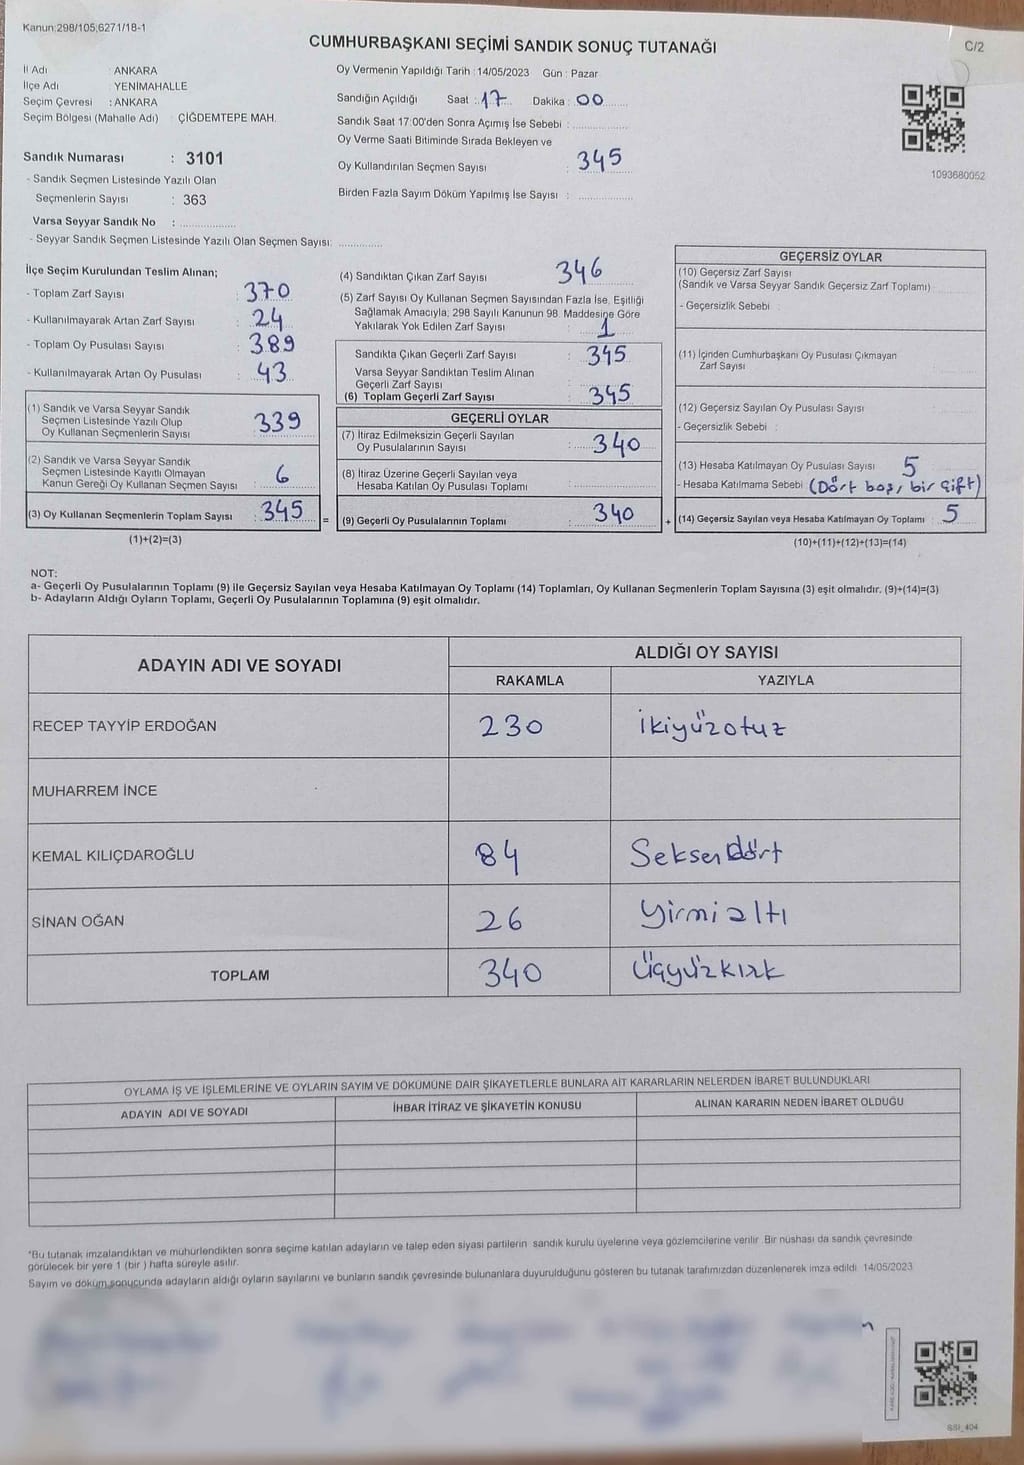 Kanun:298/105,6271/18-1
CUMHURBAŞKANI SEÇİMİ SANDIK SONUÇ TUTANAĞI
C/2
İl Adı : ANKARA
İlçe Adı : YENİMAHALLE
Seçim Çevresi : ANKARA
Seçim Bölgesi (Mahalle Adı) : ÇİĞDEMTEPE MAH.
Sandık Numarası : 3101
- Sandık Seçmen Listesinde Yazılı Olan
Seçmenlerin Sayısı : 363
Varsa Seyyar Sandık No :
- Seyyar Sandık Seçmen Listesinde Yazılı Olan Seçmen Sayısı:
Oy Vermenin Yapıldığı Tarih : 14/05/2023 Gün : Pazar
Sandığın Açıldığı Saat : 17 Dakika : 00
Sandık Saat 17:00'den Sonra Açımış İse Sebebi :
Oy Verme Saati Bitiminde Sırada Bekleyen ve
Oy Kullandırılan Seçmen Sayısı : 345
Birden Fazla Sayım Döküm Yapılmış İse Sayısı :
1093680052
İlçe Seçim Kurulundan Teslim Alınan;
- Toplam Zarf Sayısı : 370
- Kullanılmayarak Artan Zarf Sayısı : 24
- Toplam Oy Pusulası Sayısı : 389
- Kullanılmayarak Artan Oy Pusulası : 43
(1) Sandık ve Varsa Seyyar Sandık
Seçmen Listesinde Yazılı Olup
Oy Kullanan Seçmenlerin Sayısı : 339
(2) Sandık ve Varsa Seyyar Sandık
Seçmen Listesinde Kayıtlı Olmayan
Kanun Gereği Oy Kullanan Seçmen Sayısı : 6
(3) Oy Kullanan Seçmenlerin Toplam Sayısı : 345 =
(1)+(2)=(3)
(4) Sandıktan Çıkan Zarf Sayısı 346
(5) Zarf Sayısı Oy Kullanan Seçmen Sayısından Fazla İse, Eşitliği
Sağlamak Amacıyla; 298 Sayılı Kanunun 98. Maddesine Göre
Yakılarak Yok Edilen Zarf Sayısı : 1
Sandıkta Çıkan Geçerli Zarf Sayısı : 345
Varsa Seyyar Sandıktan Teslim Alınan
Geçerli Zarf Sayısı :
(6) Toplam Geçerli Zarf Sayısı : 345
GEÇERLİ OYLAR
(7) İtiraz Edilmeksizin Geçerli Sayılan
Oy Pusulalarının Sayısı : 340
(8) İtiraz Üzerine Geçerli Sayılan veya
Hesaba Katılan Oy Pusulası Toplamı :
(9) Geçerli Oy Pusulalarının Toplamı : 340 +
GEÇERSİZ OYLAR
(10) Geçersiz Zarf Sayısı
(Sandık ve Varsa Seyyar Sandık Geçersiz Zarf Toplamı) :
- Geçersizlik Sebebi :
(11) İçinden Cumhurbaşkanı Oy Pusulası Çıkmayan
Zarf Sayısı :
(12) Geçersiz Sayılan Oy Pusulası Sayısı :
- Geçersizlik Sebebi :
(13) Hesaba Katılmayan Oy Pusulası Sayısı : 5
- Hesaba Katılmama Sebebi : (Dört boş, bir çift)
(14) Geçersiz Sayılan veya Hesaba Katılmayan Oy Toplamı : 5
(10)+(11)+(12)+(13)=(14)
NOT:
a- Geçerli Oy Pusulalarının Toplamı (9) ile Geçersiz Sayılan veya Hesaba Katılmayan Oy Toplamı (14) Toplamları, Oy Kullanan Seçmenlerin Toplam Sayısına (3) eşit olmalıdır. (9)+(14)=(3)
b- Adayların Aldığı Oyların Toplamı, Geçerli Oy Pusulalarının Toplamına (9) eşit olmalıdır.
ADAYIN ADI VE SOYADI ALDIĞI OY SAYISI
RAKAMLA YAZIYLA
RECEP TAYYİP ERDOĞAN 230 ikiyüzotuz
MUHARREM İNCE
KEMAL KILIÇDAROĞLU 84 Seksendört
SİNAN OĞAN 26 yirmialtı
TOPLAM 340 üçyüzkırk
OYLAMA İŞ VE İŞLEMLERİNE VE OYLARIN SAYIM VE DÖKÜMÜNE DAİR ŞİKAYETLERLE BUNLARA AİT KARARLARIN NELERDEN İBARET BULUNDUKLARI
ADAYIN ADI VE SOYADI İHBAR İTİRAZ VE ŞİKAYETİN KONUSU ALINAN KARARIN NEDEN İBARET OLDUĞU
*Bu tutanak imzalandıktan ve mühürlendikten sonra seçime katılan adayların ve talep eden siyasi partilerin sandık kurulu üyelerine veya gözlemcilerine verilir. Bir nüshası da sandık çevresinde
görülecek bir yere 1 (bir ) hafta süreyle asılır.
Sayım ve döküm sonucunda adayların aldığı oyların sayılarını ve bunların sandık çevresinde bulunanlara duyurulduğunu gösteren bu tutanak tarafımızdan düzenlenerek imza edildi. 14/05/2023
SSI_404